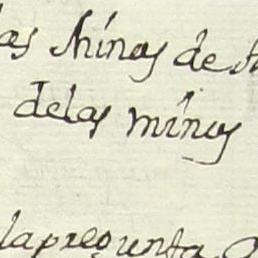 las Minas de
delas minas
la pregunta